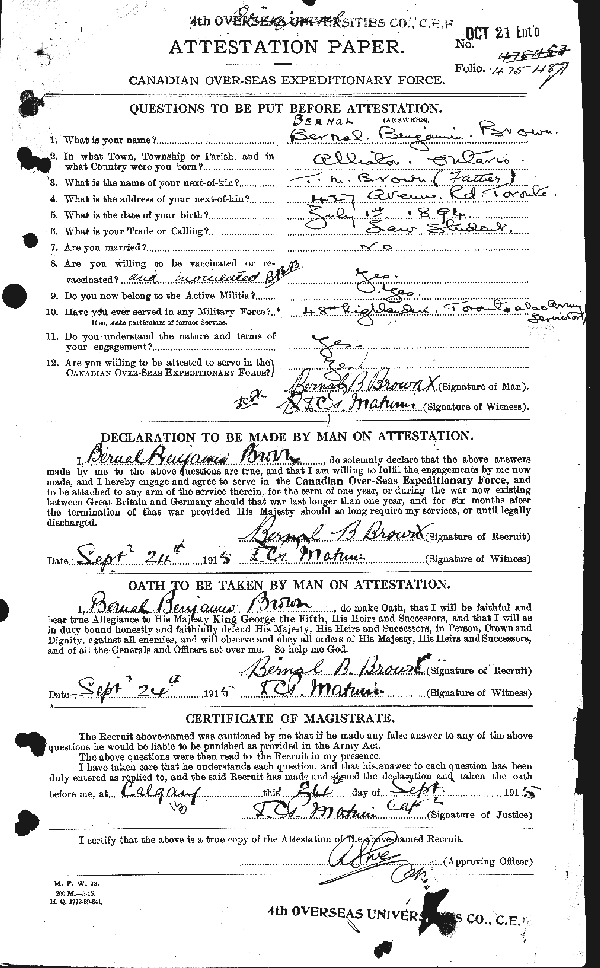 4th OVERSEAS UNIVERSITIES CO., C.E.F.
Original
OCT 21 1915
ATTESTATION PAPER.
No. 475487
Folio. 475487
CANADIAN OVER-SEAS EXPEDITIONARY FORCE.
QUESTIONS TO BE PUT BEFORE ATTESTATION.
(ANSWERS)
BERNAL
1. What is your name? Bernal Benjamin Brown
2. In what Town, Township or Parish, and in
what Country were you born? Ontario
3. What is the name of your next-of-kin? Brown (Father)
4. What is the address of your next-of-kin? Avenue Rd Toronto
5. What is the date of your birth? July 1st 1894
6. What is your Trade or Calling? Law Student
7. Are you married? No
8. Are you willing to be vaccinated or re-
vaccinated? and inoculated BBB Yes.
9. Do you now belong to the Active Militia? Yes
10. Have you ever served in any Military Force? 48th Highlanders, Toronto also Army
If so, state particulars of former Service.
11. Do you understand the nature and terms of
your engagement? Yes.
12. Are you willing to be attested to serve in the
CANADIAN OVER-SEAS EXPEDITIONARY FORCE? Yes
Bernal B Brown X (Signature of Man).
(Signature of Witness).
DECLARATION TO BE MADE BY MAN ON ATTESTATION.
I, Bernal Benjamin Brown, do solemnly declare that the above answers
made by me to the above questions are true, and that I am willing to fulfil the engagements by me now
made, and I hereby engage and agree to serve in the Canadian Over-Seas Expeditionary Force, and
to be attached to any arm of the service therein, for the term of one year, or during the war now existing
between Great Britain and Germany should that war last longer than one year, and for six months after
the termination of that war provided His Majesty should so long require my services, or until legally
discharged.
Bernal B Brown X (Signature of Recruit)
Date Sept 24th 1915 (Signature of Witness)
OATH TO BE TAKEN BY MAN ON ATTESTATION.
I, Bernal Benjamin Brown, do make Oath, that I will be faithful and
bear true Allegiance to His Majesty King George the Fifth, His Heirs and Successors, and that I will as
in duty bound honestly and faithfully defend His Majesty, His Heirs and Successors, in Person, Crown and
Dignity, against all enemies, and will observe and obey all orders of His Majesty, His Heirs and Successors,
and of all the Generals and Officers set over me. So help me God.
Bernal B Brown X (Signature of Recruit)
Date Sept 24th 1915 (Signature of Witness)
CERTIFICATE OF MAGISTRATE.
The Recruit above-named was cautioned by me that if he made any false answer to any of the above
questions he would be liable to be punished as provided in the Army Act.
The above questions were then read to the Recruit in my presence.
I have taken care that he understands each question, and that his answer to each question has been
duly entered as replied to, and the said Recruit has made and signed the declaration and taken the oath
before me, at Calgary this day of Sept 1915
Capt (Signature of Justice)
I certify that the above is a true copy of the Attestation of the above-named Recruit.
(Approving Officer)
M. F. W. 23.
H. Q. 1772-39-841.
4th OVERSEAS UNIVERSITIES CO., C.E.F.